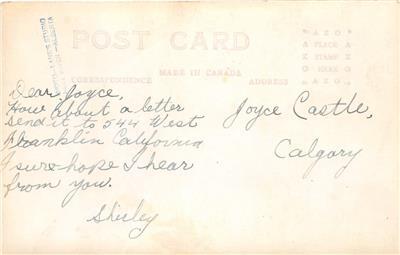 POST CARD
CORRESPONDENCE
MADE IN CANADA
ADDRESS
AZO
PLACE
STAMP
HERE
AZO
STUDIO
ALBERTA
Dear Joyce,
How about a letter
send it to 544 West
Franklin California
I sure hope I hear
from you.
Shirley
Joyce Castle,
Calgary